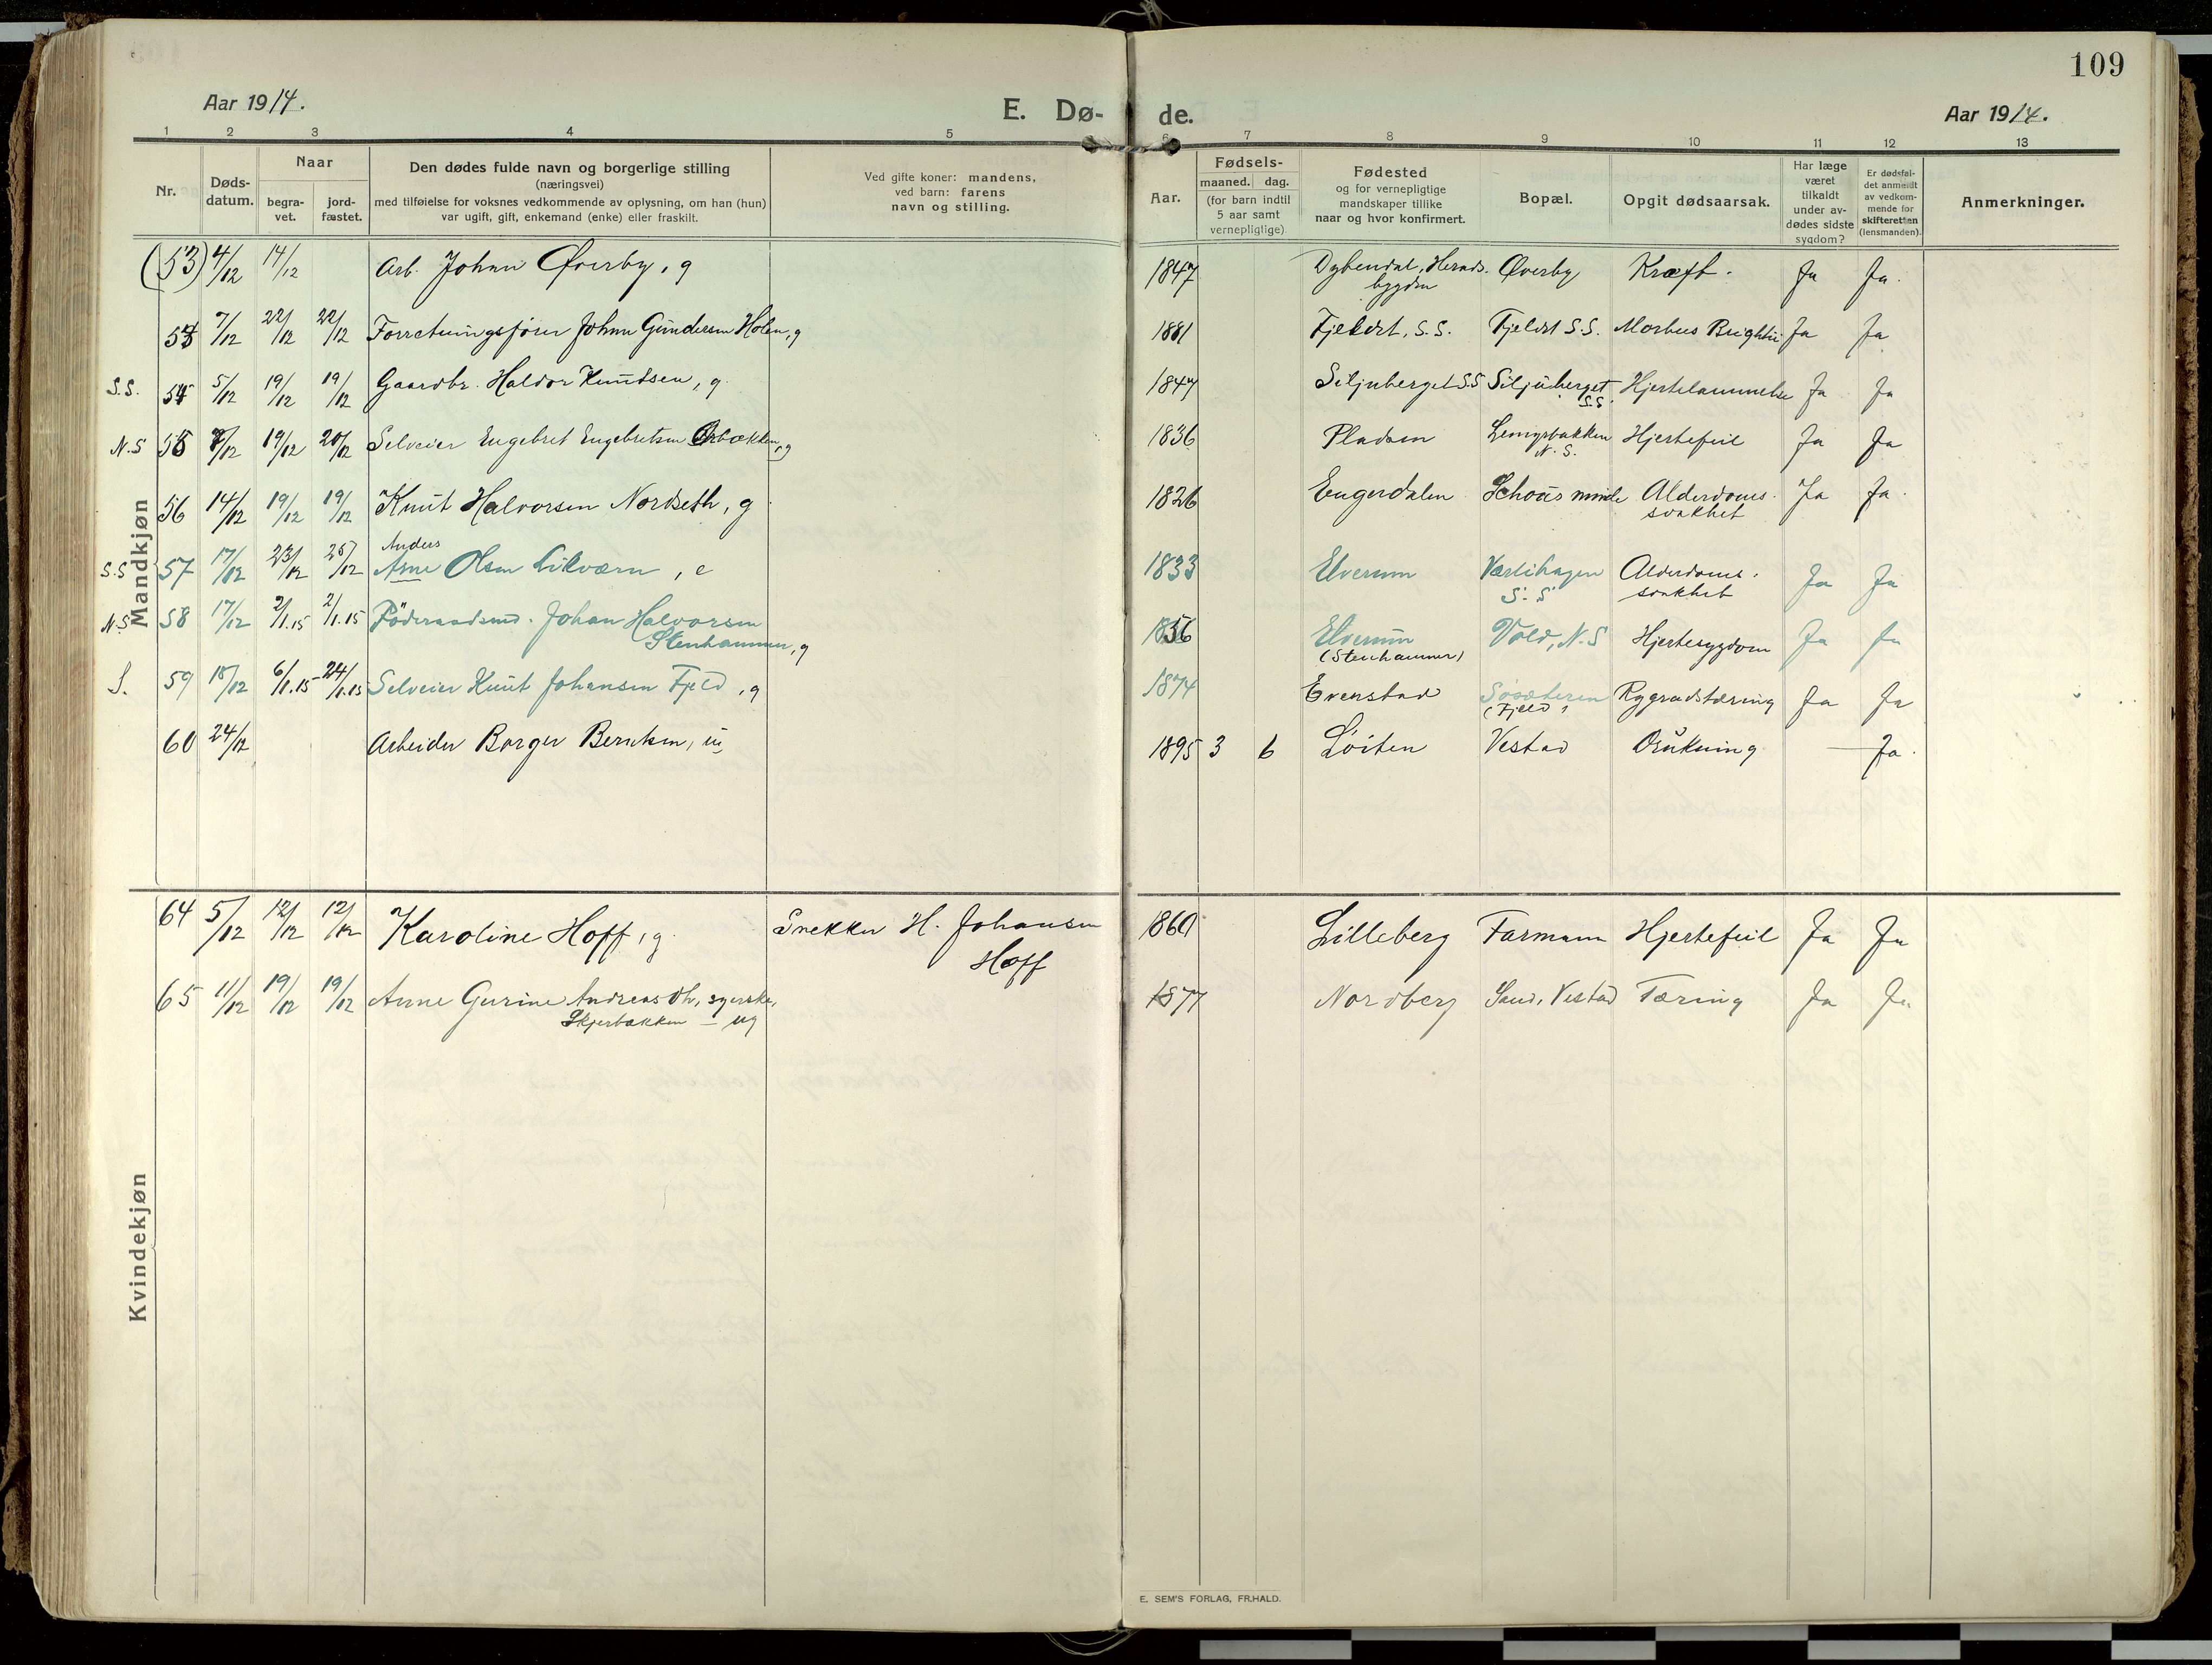 109
Aar 1914.
E. Dø- de.
Aar 1914.
1 2 3 4 5 6 7 8 9 10 11 12 13
Nr.
Døds-
datum.
Naar
begra-
vet.
jord-
fæstet.
Den dødes fulde navn og borgerlige stilling
(næringsvei)
med tilføielse for voksnes vedkommende av oplysning, om han (hun)
var ugift, gift, enkemand (enke) eller fraskilt.
Ved gifte koner: mandens,
ved barn: farens
navn og stilling.
Aar.
Fødsels-
maaned. dag.
(for barn indtil
5 aar samt
vernepligtige)
Fødested
og for vernepligtige
mandskaper tillike
naar og hvor konfirmert.
Bopæl.
Opgit dødsaarsak.
Har læge
været
tilkaldt
under av-
dødes sidste
sygdom?
Er dødsfal-
det anmeldt
av vedkom-
mende for
skifteretten
(lensmanden).
Anmerkninger.
Mandkjøn
(53) 4/12 14/12 Arb. Johan Øverby, g 1847 Herads- Øverby Kræft. Ja Ja.
bygden
54 7/12 22/12 22/12 Forretningsfører Johan Gundersen Holen, g 1881 Fjeldst, S.S. Fjeldst S.S. Morbus Brightii Ja Ja
S.S. 54 5/12 19/12 19/12 Gaardbr. Haldor Knudsen, g. 1847 Siljuberget S.S Siljuberget Hjertelammelse Ja Ja
S.S.
N.S 55 7/12 19/12 20/12 Selveier Engebret Engebretsen g 1836 Pladsen Hjertefeil Ja Ja
N.S.
56 14/12 19/12 19/12 Knut Halvorsen Nordseth, g 1826 Engerdalen Schous minde Alderdoms- Ja Ja.
svakhet
Anders
S.S 57 17/12 23/12 Arne Olsen Lilværn, e 1833 Elverum Væstihagen Alderdoms- Ja Ja
S.S svakhet
N.S 58 17/12 2/1.15 2/1.15 Föderaadsmd. Johan Halvorsen 1856 Elverum Vold, N.S Hjertesygdom Ja Ja
Stenhammer, g (Stenhammer)
S. 59 18/12 6/1.15 24/1.15 Selveier Knut Johansen Fjeld, g 1874 Evenstad Søsæteren Rygradstæring Ja Ja
(Fjeld)
60 24/12 Arbeider Borger Berntsen, u 1895 3 6 Löiten Vestad Drukning — Ja.
Kvindekjøn
64 5/12 12/12 12/12 Karoline Hoff, g. Snekker H. Johansen 1860 Lilleberg Farmann Hjertefeil Ja Ja
Hoff
65 11/12 19/12 19/12 Anne Gurine Andreasdtr, syerske, 1877 Nordberg Sand, Vestad Tæring Ja Ja
Skjerbakken — ug
E. SEM'S FORLAG, FR.HALD.